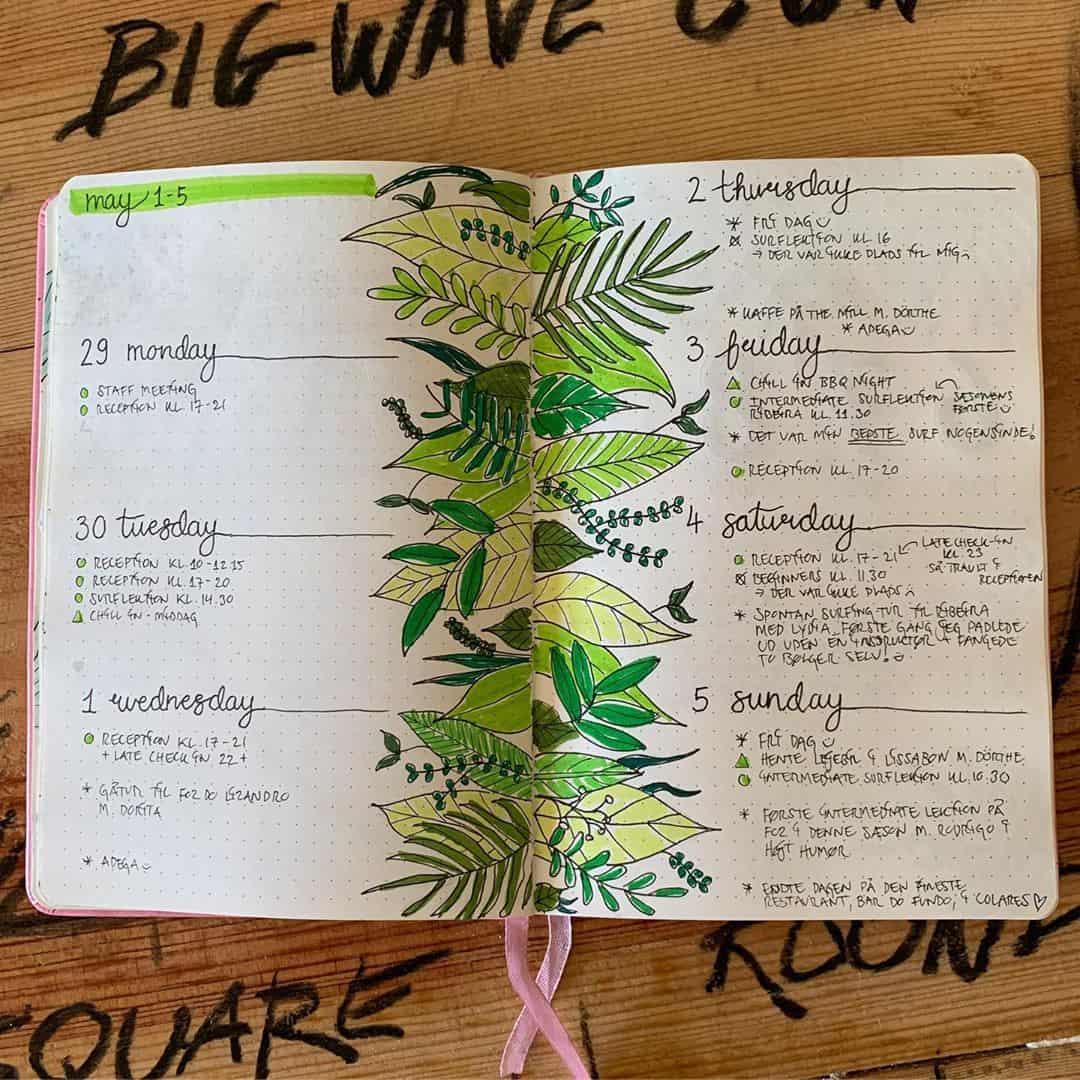 BIG WAVE
may 1-5
29 monday
STAFF MEETING
RECEPTION KL. 17-21
30 tuesday
RECEPTION KL. 10-12.15
RECEPTION KL. 17-20
SURFLEKTION KL. 14.30
CHILL IN - MIDDAG
1 wednesday
RECEPTION KL. 17-21
+ LATE CHECK IN 22 +
* GÅTUR TIL FOZ DO LIZANDRO
M. DORITA
* ADEGA
2 thursday
* FRI DAG
SURFLEKTION KL 16
→ DER VAR IKKE PLADS TIL MIG
* KAFFE PÅ THE MILL M. DÖRTHE
* ADEGA
3 friday
CHILL IN BBQ NIGHT
INTERMEDIATE SURFLEKTION
RIBEIRA KL 11.30
SÆSONENS
FØRSTE
* DET VAR MIN BEDSTE SURF NOGENSINDE!
RECEPTION KL. 17-20
4 saturday
RECEPTION KL. 17-21
LATE CHECK-IN
KL. 23
SÅ TRAVLT I
RECEPTIONEN
BEGINNERS KL. 11.30
→ DER VAR IKKE PLADS
* SPONTAN SURFING TUR TIL RIBEIRA
MED LYDIA. FØRSTE GANG JEG PADLEDE
UD UDEN EN INSTRUCTOR + FANGEDE
TO BØLGER SELV!
5 sunday
* FRI DAG
HENTE LEJEBIL I LISSABON M. DÖRTHE
INTERMEDIATE SURFLEKTION KL. 10.30
* FØRSTE INTERMEDIATE LEKTION PÅ
FOZ I DENNE SÆSON M. RODRIGO I
HØJT HUMØR
* ENDTE DAGEN PÅ DEN FINESTE
RESTAURANT, BAR DO FUNDO, I COLARES ♡
SQUARE
ROUND